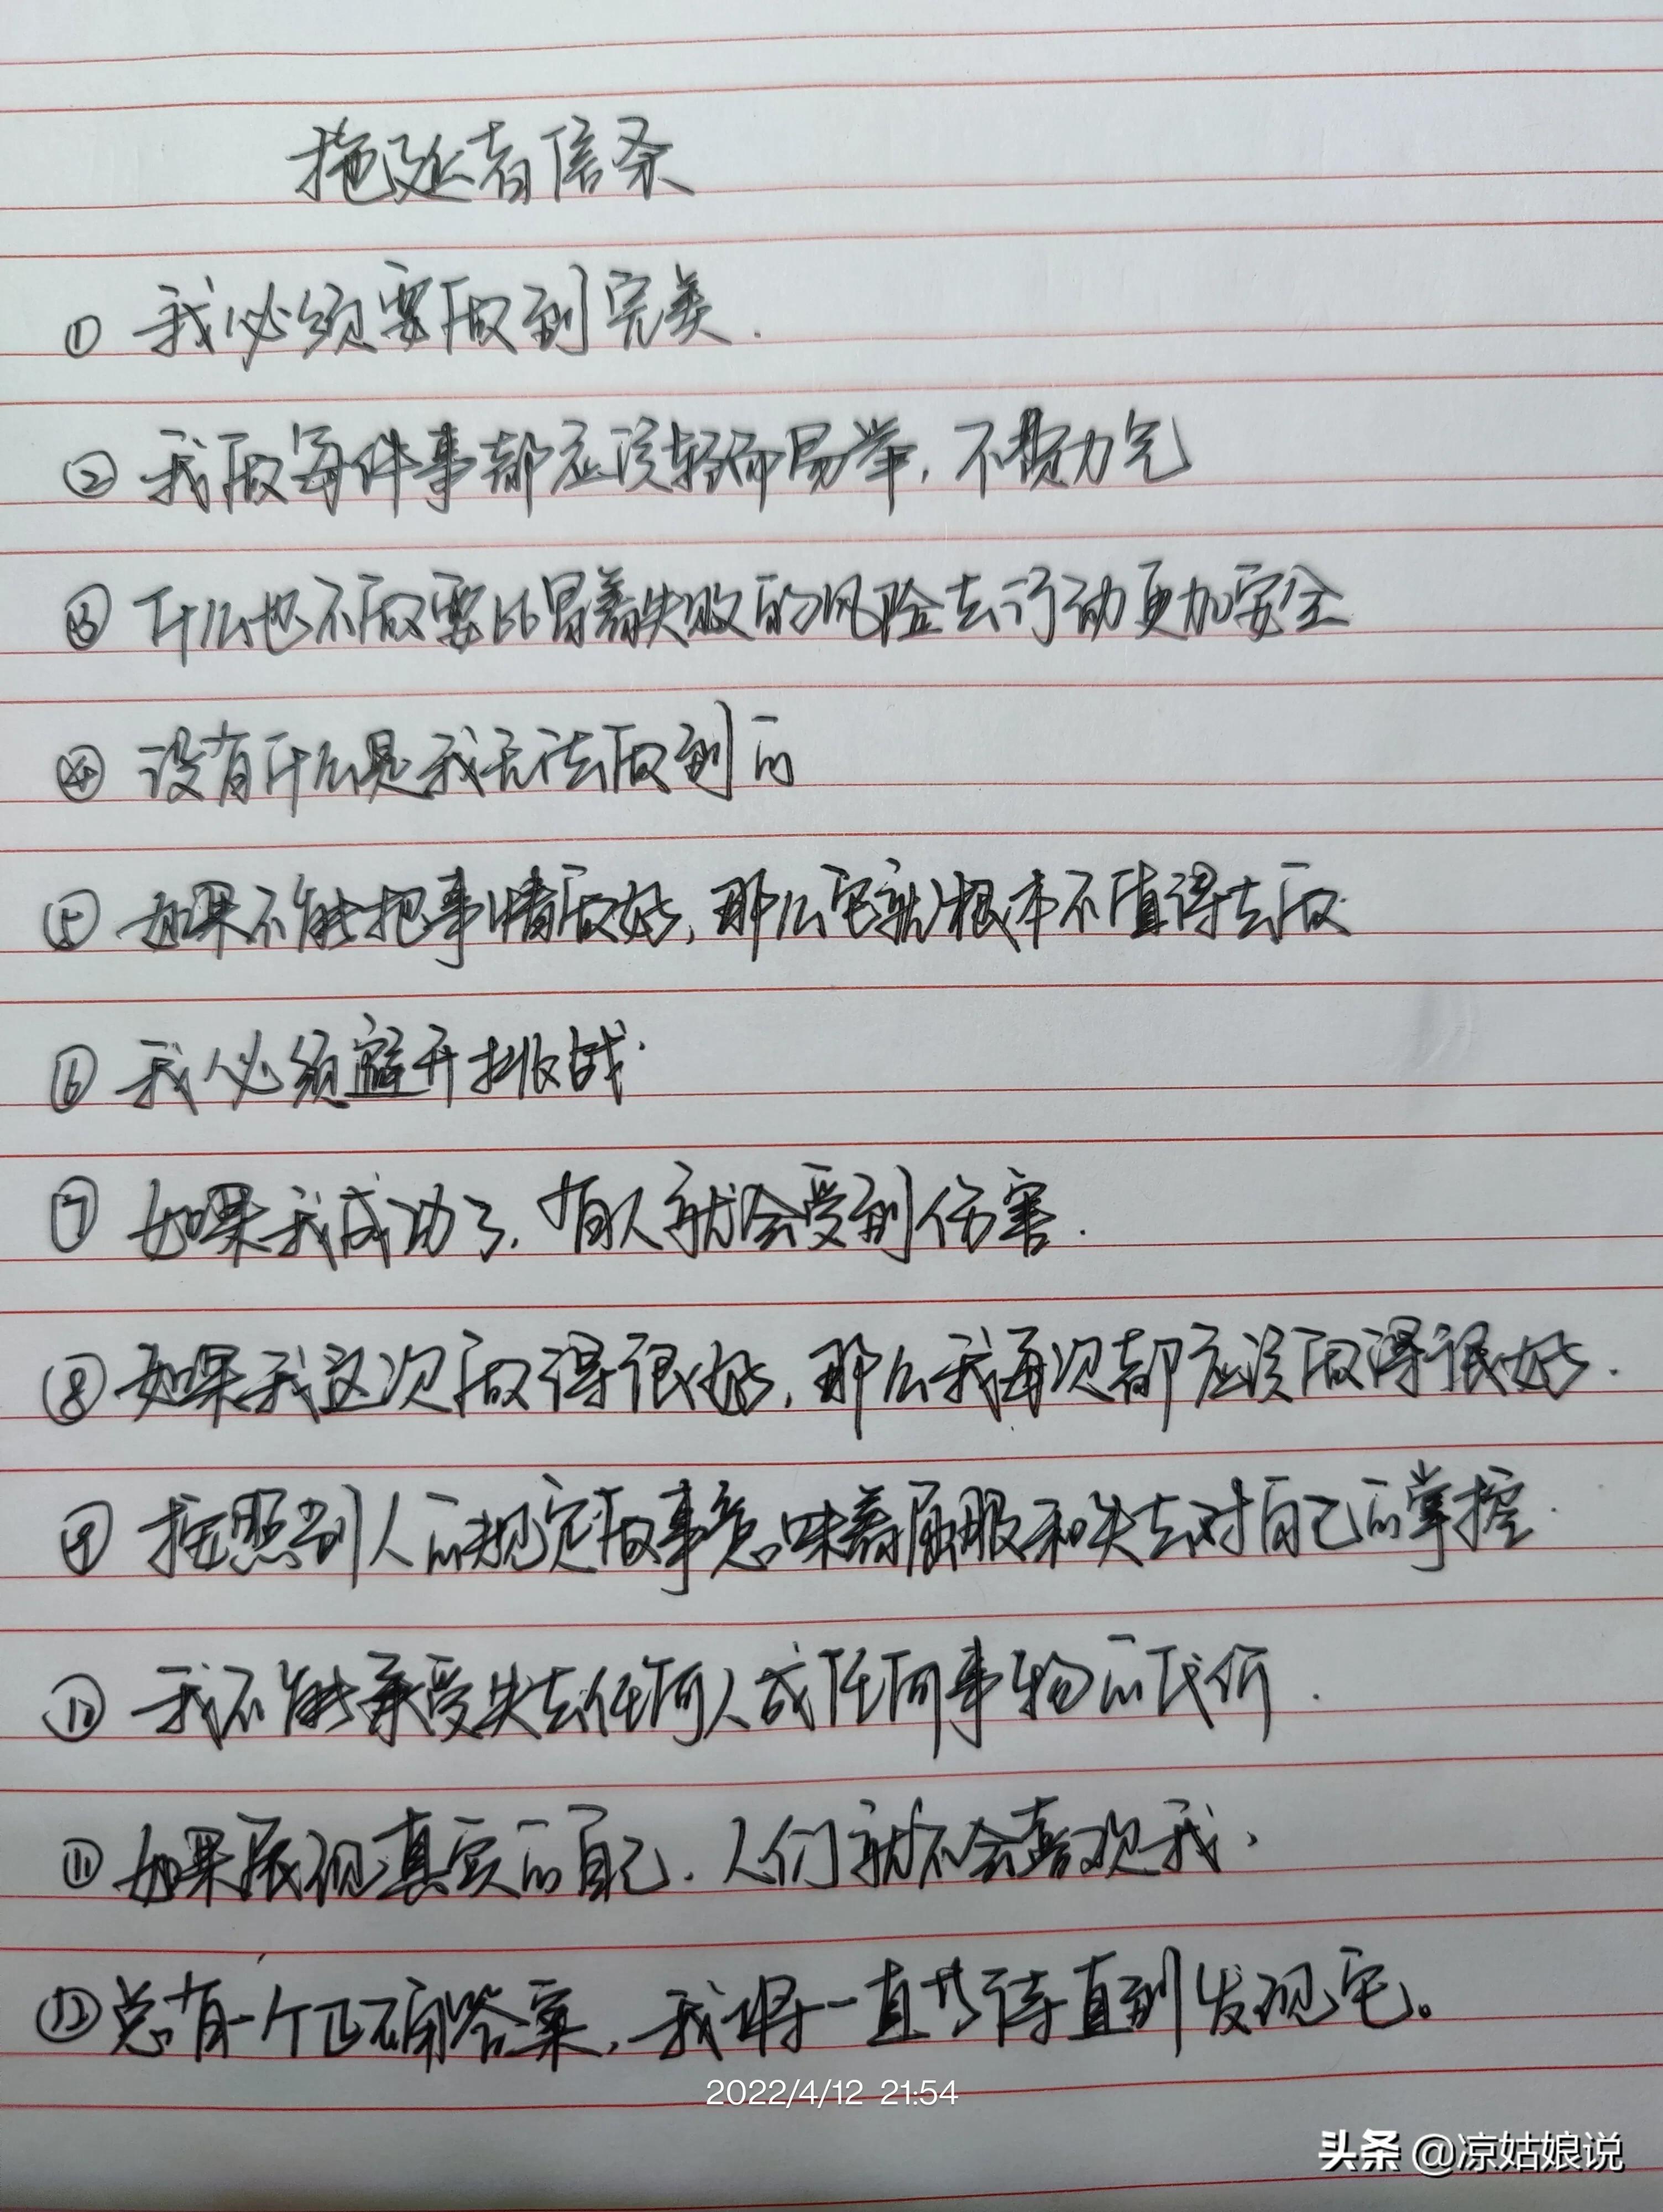 拖延者信条
① 我必须要做到完美.
② 我做每件事都应该轻而易举, 不费力气
③ 什么也不做要比冒着失败的风险去行动更加安全
④ 没有什么是我无法做到的
⑤ 如果不能把事情做好, 那么它就根本不值得去做.
⑥ 我必须避开挑战.
⑦ 如果我成功了, 有人就会受到伤害.
⑧ 如果我这次做得很好, 那么我每次都应该做得很好.
⑨ 按照别人的规定做事意味着屈服和失去对自己的掌控.
⑩ 我不能承受失去任何人或任何事物的代价.
⑪ 如果展现真实的自己, 人们就不会喜欢我.
⑫ 总有一个正确答案, 我将一直等待直到发现它。
2022/4/12 21:54
头条 @凉姑娘说